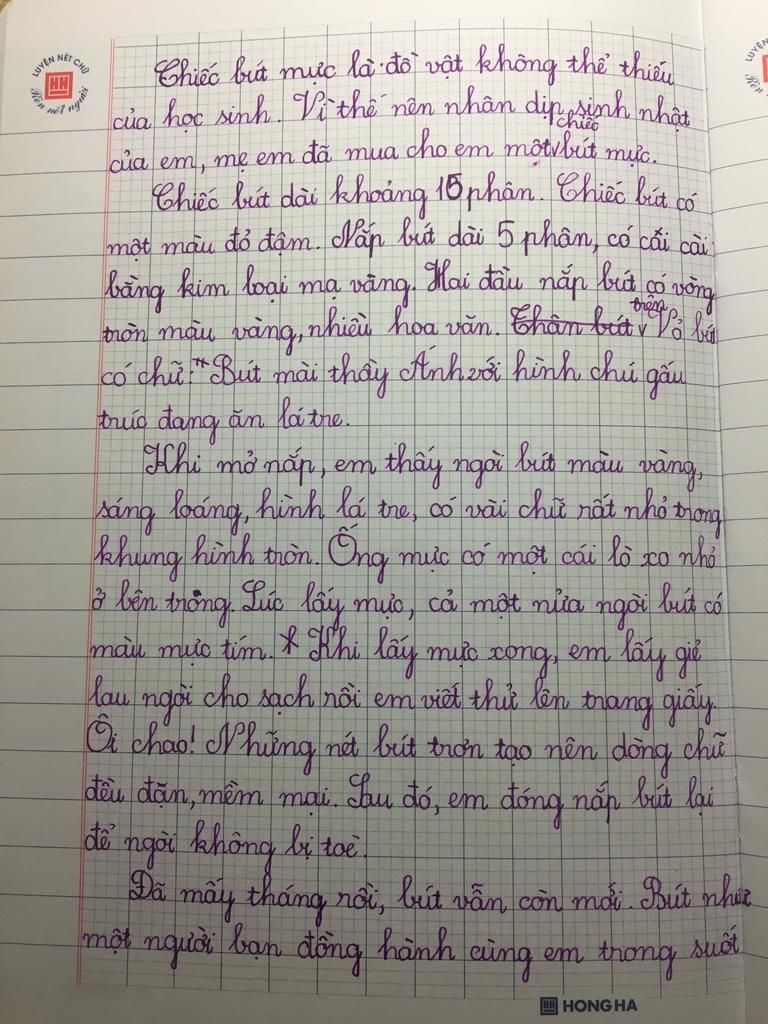 LUYỆN NÉT CHỮ
Rèn nết người
Chiếc bút mực là đồ vật không thể thiếu
của học sinh. Vì thế nên nhân dịp sinh nhật
của em, mẹ em đã mua cho em một chiếc bút mực.
Chiếc bút dài khoảng 15 phân. Chiếc bút có
một màu đỏ đậm. Nắp bút dài 5 phân, có cái cài
bằng kim loại mạ vàng. Hai đầu nắp bút có vòng
tròn màu vàng, nhiều hoa văn. Thân bút trên Vỏ bút
có chữ: "Bút mài thầy Ánh với hình chú gấu
trúc đang ăn lá tre.
Khi mở nắp, em thấy ngòi bút màu vàng,
sáng loáng, hình lá tre, có vài chữ rất nhỏ trong
khung hình tròn. Ống mực có một cái lò xo nhỏ
ở bên trong. Lúc lấy mực, cả một nửa ngòi bút có
màu mực tím. * Khi lấy mực xong, em lấy giẻ
lau ngòi cho sạch rồi em viết thử lên trang giấy.
Ôi chao! Những nét bút trơn tạo nên dòng chữ
đều đặn, mềm mại. Sau đó, em đóng nắp bút lại
để ngòi không bị toè.
Đã mấy tháng rồi, bút vẫn còn mới. Bút như
một người bạn đồng hành cùng em trong suốt
HONG HA